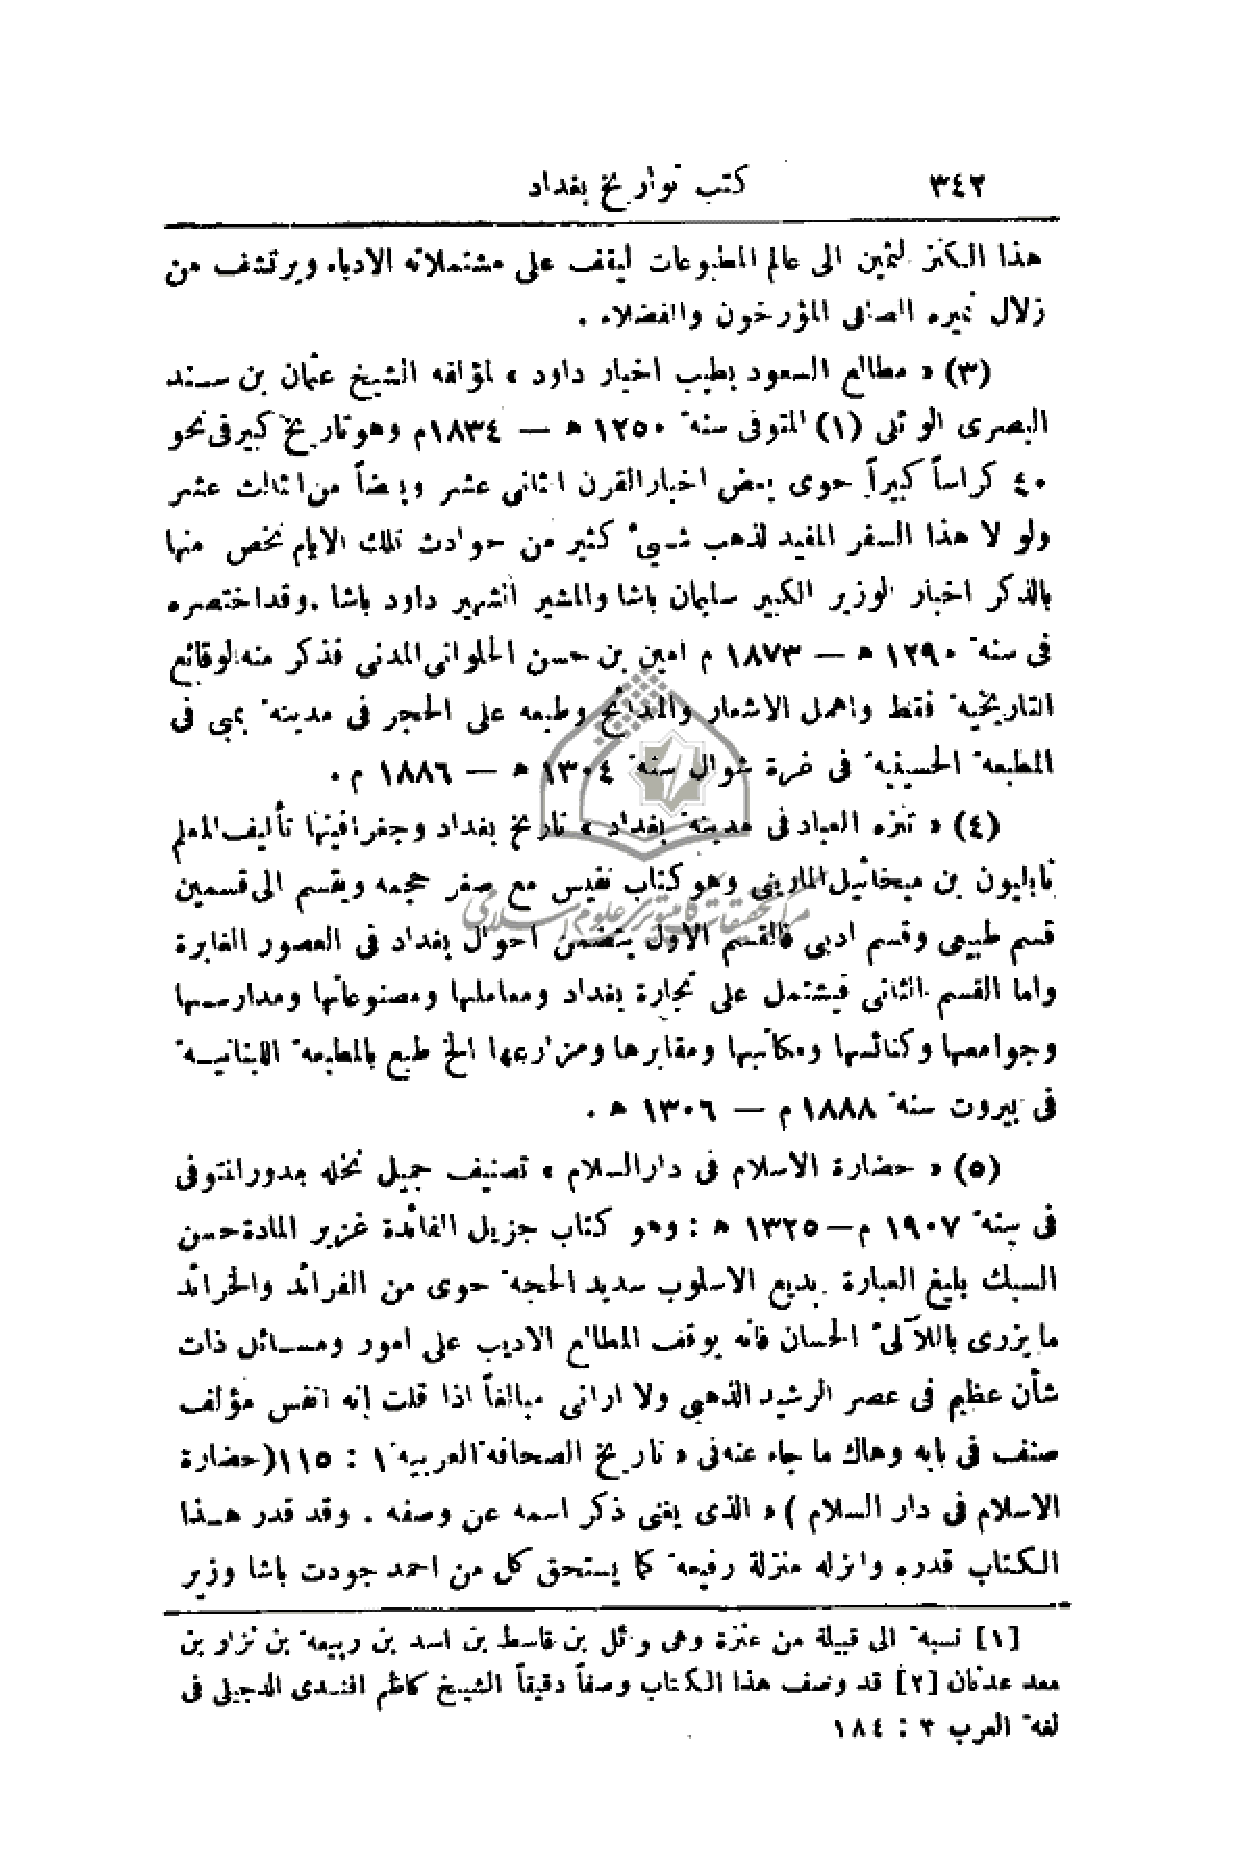 ٣٤٢ كتب تواريخ بغداد
هذا الكنز لثمين الى عالم المطبوعات ليقف على مشتملاته الادباء ويرتشف من
زلال نميره الصافى المؤرخون والفضلاء .
(٣) « مطالع السعود بطيب اخبار داود » لمؤلفه الشيخ عثمان بن سند
البصرى الوئلى (١) المتوفى سنة ١٢٥٠ هـ — ١٨٣٤م وهو تاريخ كبير فى نحو
٤٠ كراساً كبيراً حوى بعض اخبار القرن الثانى عشر وبعضاً من الثالث عشر
ولو لا هذا السفر المفيد لذهب شيئ كثير من حوادث تلك الايام نخص منها
بالذكر اخبار الوزير الكبير سليمان باشا والمشير الشهير داود باشا . وقد اختصره
فى سنة ١٢٩٠ هـ — ١٨٧٣ م امين بن حسن الحلوانى المدنى فذكر منه الوقائع
التاريخية فقط واهمل الاشعار والمدائح وطبعه على الحجر فى مدينة بمبى فى
المطبعة الحسينية فى غرة شوال سنة ١٣٠٤ هـ — ١٨٨٦ م .
(٤) « تنزه العباد فى مدينة بغداد » تاريخ بغداد وجغرافيتها تأليف المعلم
نابليون بن ميخائيل المارينى وهو كتاب نفيس مع صغر حجمه ويقسم الى قسمين
مركز تحقيقات كامپيوترى علوم اسلامى
قسم طبيعى وقسم ادبى فالقسم الاول يتضمن احوال بغداد فى العصور الغابرة
واما القسم الثانى فيشتمل على تجارة بغداد ومعاملها ومصنوعاتها ومدارسها
وجوامعها وكنائسها ومكاتبها ومقابرها ومزارعها الخ طبع بالمطبعة اللبنانية
فى بيروت سنة ١٨٨٨ م — ١٣٠٦ هـ .
(٥) « حضارة الاسلام فى دار السلام » تصنيف جميل نخله مدور المتوفى
فى سنة ١٩٠٧ م — ١٣٢٥ هـ : وهو كتاب جزيل الفائدة غزير المادة حسن
السبك بليغ العبارة بديع الاسلوب سديد الحجة حوى من الفرائد والخرائد
ما يزرى باللآلئ الحسان فانه يوقف المطالع الاديب على امور ومسائل ذات
شأن عظيم فى عصر الرشيد الذهبى ولا ارانى مبالغاً اذا قلت إنه انفس مؤلف
صنف فى بابه وهاك ما جاء عنه فى « تاريخ الصحافة العربية ١ : ١١٥ (حضارة
الاسلام فى دار السلام ) « الذى يغنى ذكر اسمه عن وصفه . وقد قدر هذا
الكتاب قدره وانزله منزلة رفيعة كما يستحق كل من احمد جودت باشا وزير
[١] نسبة الى قبيلة من عنزة وهى وئل بن قاسط بن اسد بن ربيعة بن نزار بن
معد عدنان [٢] قد وصف هذا الكتاب وصفاً دقيقاً الشيخ كاظم افندى الدجيلى فى
لغة العرب ٣ : ١٨٤